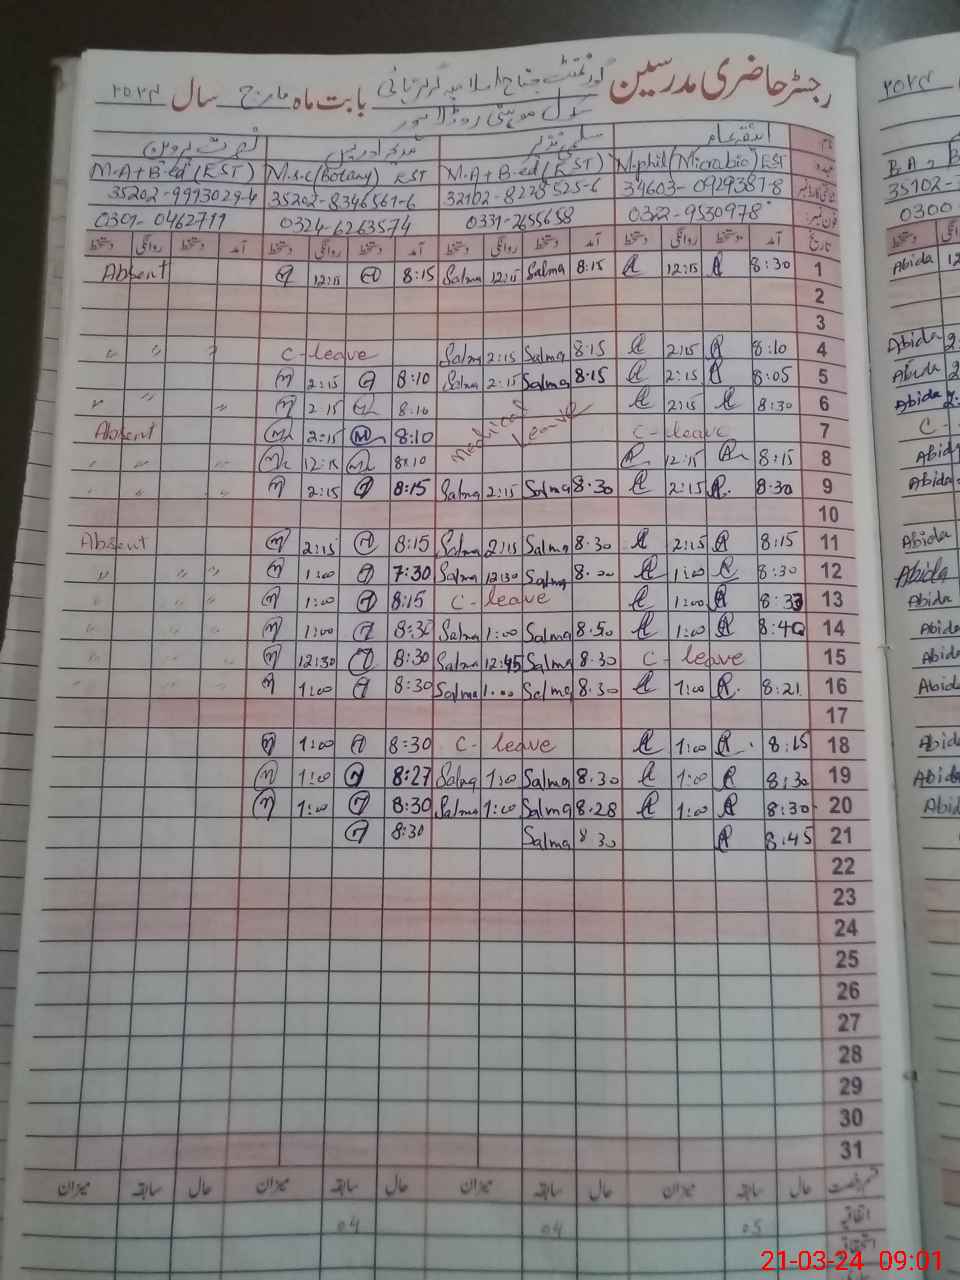 رجسٹر حاضری مدرسین گورنمنٹ جناح اسلامیہ گرلز ہائی بابت ماہ مارچ سال ۲۰۲۴
سکول موہنی روڈ لاہور
نام سلمیٰ نذیر مدیحہ ادریس نصرت پروین
عہدہ M.phil (Microbio) EST M.A + B.ed (EST) M.s.c (Botany) EST M.A + B.ed (EST)
34603-0929387-8 32102-8228525-6 35202-8346561-6 35202-9993029-4
فون نمبر 0322-9530978 0331-2655658 0324-6263574 0301-0462711
تاریخ آمد دستخط روانگی دستخط آمد دستخط روانگی دستخط آمد دستخط روانگی دستخط آمد دستخط روانگی دستخط
1 8:30 12:15 8:15 Salma 12:15 Salma 8:15 12:15 Absent
2
3
4 8:10 2:15 8:15 Salma 2:15 Salma C-leave " " "
5 8:05 2:15 8:15 Salma 2:15 Salma 8:10 2:15
6 8:30 2:15 Medical Leave 8:10 2:15 " " "
7 C-leave 8:10 2:15 Absent
8 8:15 12:15 8:10 12:15 " " "
9 8:30 2:15 8:30 Salma 2:15 Salma 8:15 2:15 " " "
10
11 8:15 2:15 8:30 Salma 2:15 Salma 8:15 2:15 Absent
12 8:30 1:00 8:00 Salma 12:30 Salma 7:30 1:00 " " "
13 8:33 1:00 C-leave 8:15 1:00 " " "
14 8:40 1:00 8:50 Salma 1:00 Salma 8:30 1:00 " " "
15 C-leave 8:30 Salma 12:45 Salma 8:30 12:30 " " "
16 8:21 1:00 8:30 Salma 1:00 Salma 8:30 1:00 " " "
17
18 8:15 1:00 C-leave 8:30 1:00
19 8:30 1:00 8:30 Salma 1:00 Salma 8:27 1:00
20 8:30 1:00 8:28 Salma 1:00 Salma 8:30 1:00
21 8:45 8:30 Salma 8:30
22
23
24
25
26
27
28
29
30
31
قسم رخصت حال سابقہ میزان حال سابقہ میزان حال سابقہ میزان حال سابقہ میزان
اتفاقیہ 05 04 04
استحقاقیہ
۲۰۲۴
B.A,
35102-
0300
دستخط
Abida 12
Abida 2
Abida 2
Abida 2
C-
Abida
Abida
Abida
Abida
Abida
Abida
Abida
Abida
Abida
Abida
Abida
21-03-24 09:01